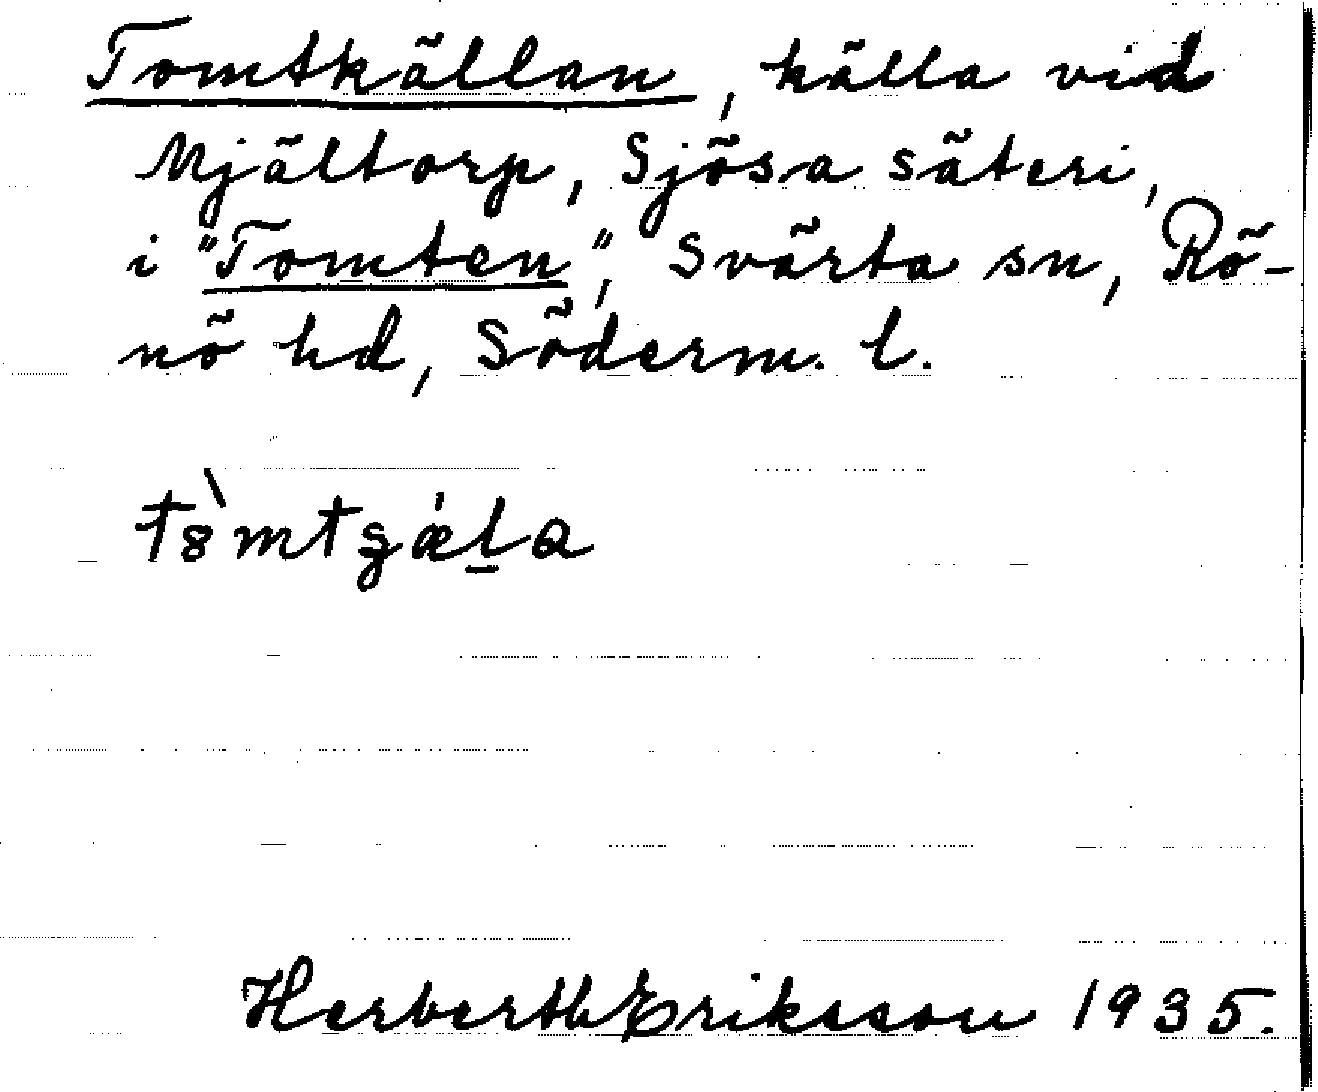 Tomtkällan, källa vid
Mjältorp, Sjösa säteri,
i "Tomten", Svärta sn, Rö-
nö hd, Söderm. l.
Herberth Eriksson 1935.